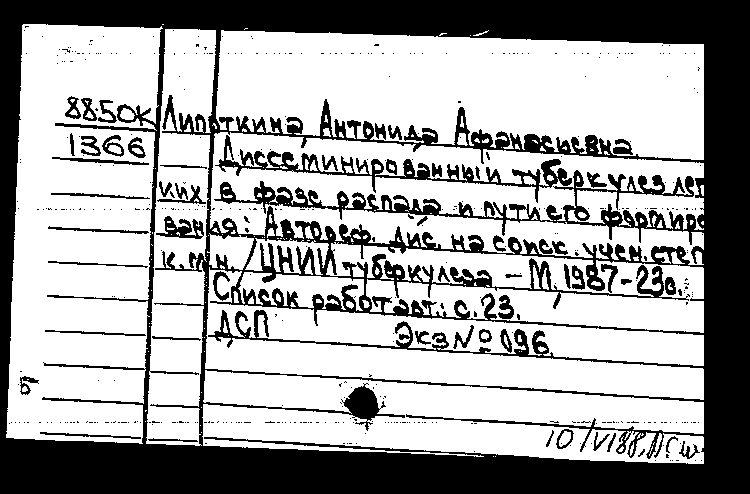 88.50К Липаткина, Антонида Афанасиевна.
1366 Диссеминированный туберкулез лег
ких в фазе распада и пути его формиро
вания: Автореф. дис. на соиск. учен. степ
к.м.н. / ЦНИИ туберкулеза. – М., 1987 – 23с.
Список работ авт.: с. 23.
ДСП Экз № 096.
10/VI88,